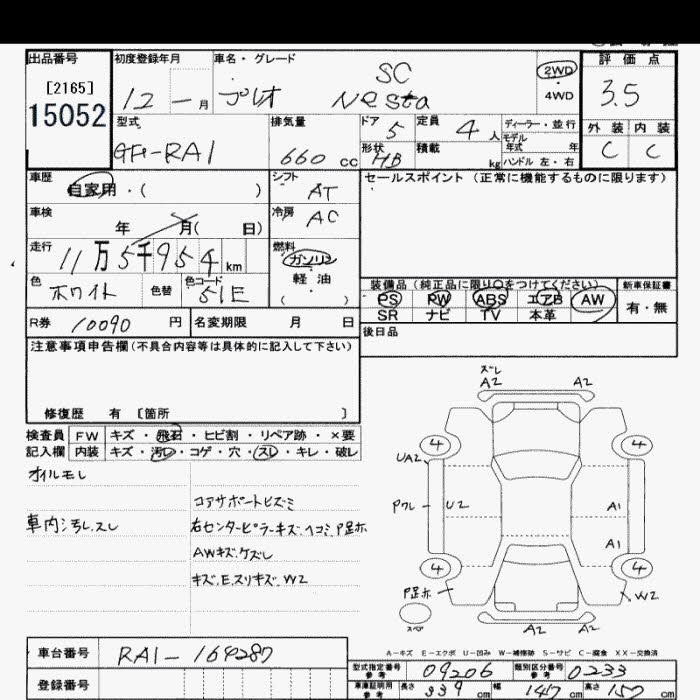 出品番号 初度登録年月 車名・グレード 評価点
[2165]
15052
12 - 月 プレオ SC Nesta 2WD 4WD 3.5
型式 排気量 ドア 5 定員 4人 ディーラー・並行 外装 内装
GH-RA1 660 cc 形状 HB 積載 kg モデル年式 年 ハンドル 左・右 C C
車歴 自家用・( ) シフト AT セールスポイント(正常に機能するものに限ります)
車検 年 月( 日) 冷房 AC
走行 11万5千954km 燃料 ガソリン 軽油 ( )
色 ホワイト 色替 色コード 51E
装備品(純正品に限り○をつけてください) 新車保証書
PS PW ABS エアB AW 有・無
SR ナビ TV 本革
R券 10090 円 名変期限 月 日 後日品
注意事項申告欄(不具合内容等は具体的に記入して下さい)
修復歴 有 [箇所 ]
検査員 FW キズ・飛石・ヒビ割・リペア跡・×要
記入欄 内装 キズ・汚レ・コゲ・穴・スレ・キレ・破レ
オイルモレ
コアサポートヒズミ
車内汚レ.スレ 右センターピラーキズ.ヘコミ P足ホ
AWキズ.ケズレ
キズ.E.スリキズ.W2
ズレ
A2 A2
4 4
UA2
Pワレ U2 A1
A1
4 4
P足ホ W2
スペア
A2 A2
A-キズ E-エクボ U-凹み W-補修跡 S-サビ C-腐食 XX-交換済
車台番号 RA1-164287
型式指定番号 参考 09206 類別区分番号 参考 0233
登録番号
車庫証明用 参考 長さ 339 cm 幅 147 cm 高さ 157 cm